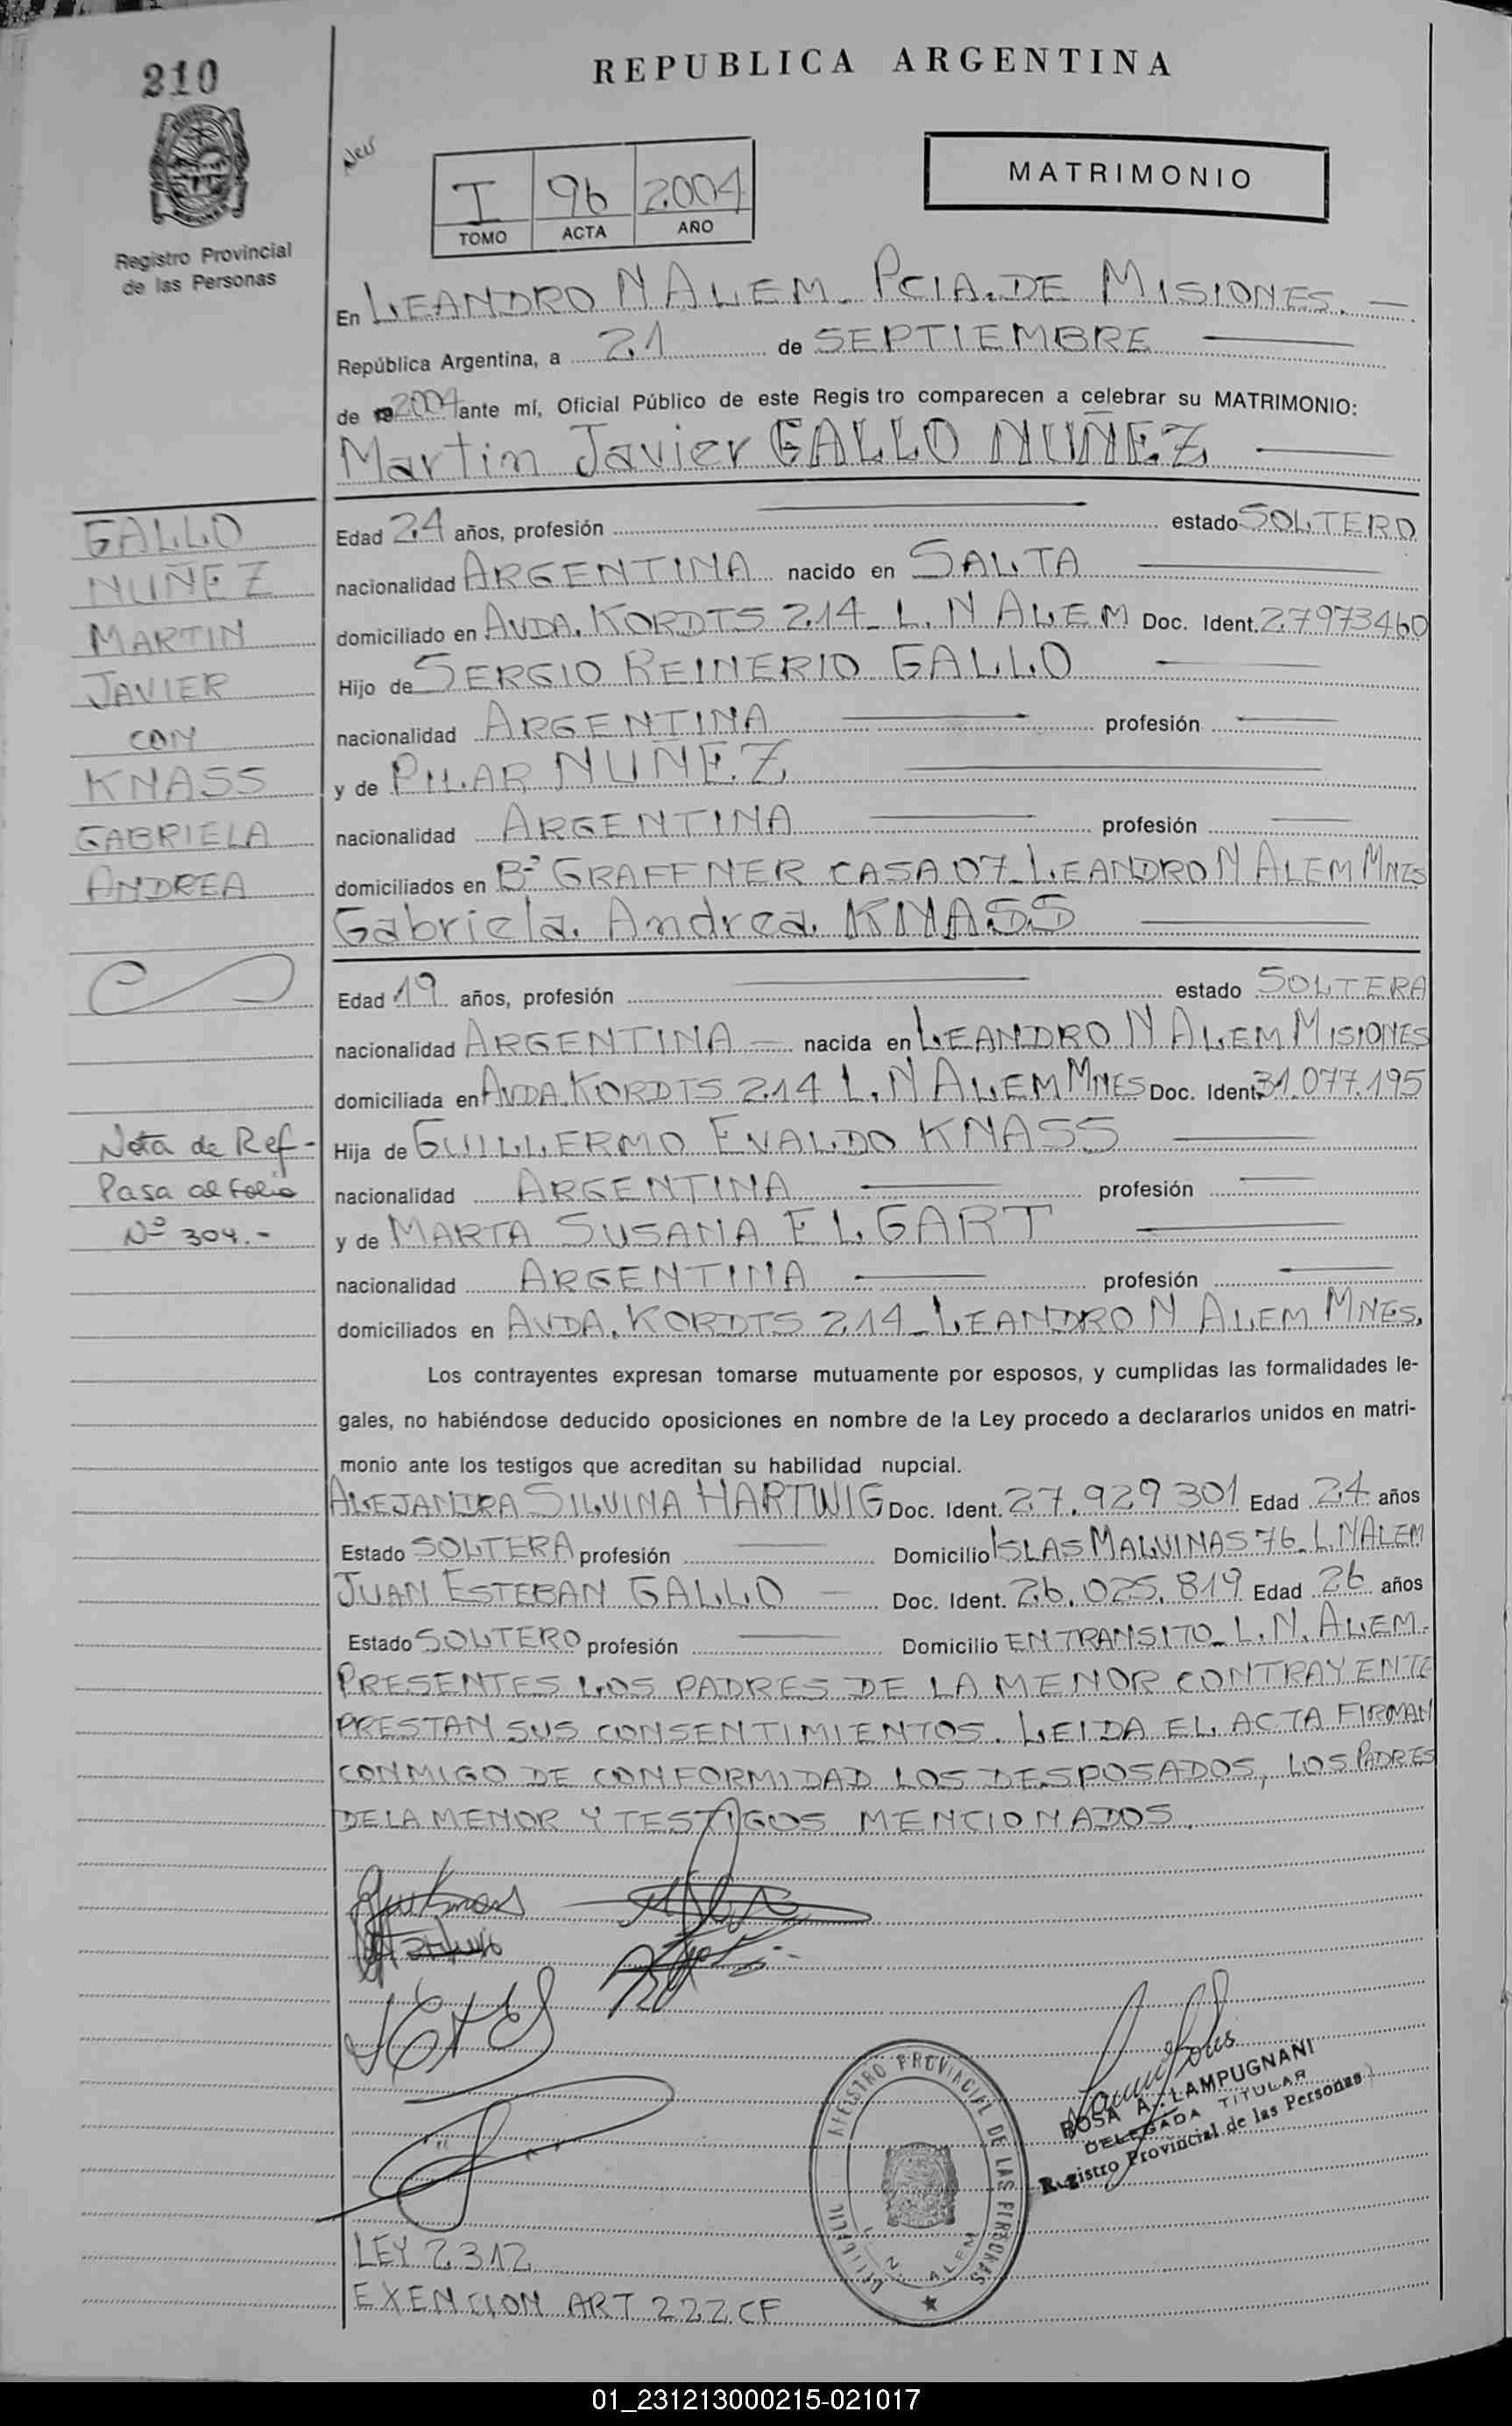 210
REPUBLICA ARGENTINA
MATRIMONIO
I 96 2004
TOMO ACTA AÑO
Registro Provincial
de las Personas
En LEANDRO N ALEM. PCIA. DE MISIONES.
República Argentina, a 21 de SEPTIEMBRE
de 2004 ante mí, Oficial Público de este Regis tro comparecen a celebrar su MATRIMONIO:
Martin Javier GALLO NUÑEZ
GALLO
NUÑEZ
MARTIN
JAVIER
CON
KNASS
GABRIELA
ANDREA
Edad 24 años, profesión estado SOLTERO
nacionalidad ARGENTINA nacido en SALTA
domiciliado en AVDA. KORDTS 214_ L. N ALEM Doc. Ident. 27973460
Hijo de SERGIO REINERIO GALLO
nacionalidad ARGENTINA profesión
y de PILAR NUÑEZ
nacionalidad ARGENTINA profesión
domiciliados en Bº GRAFFNER CASA 07_ LEANDRO N ALEM MNES
Gabriela Andrea KNASS
Edad 19 años, profesión estado SOLTERA
nacionalidad ARGENTINA nacida en LEANDRO N ALEM MISIONES
domiciliada en AVDA. KORDTS 214 L. N ALEM MNES Doc. Ident. 31.077.195
Hija de GUILLERMO EVALDO KNASS
nacionalidad ARGENTINA profesión
y de MARTA SUSANA ELGART
nacionalidad ARGENTINA profesión
domiciliados en AVDA. KORDTS 214_ LEANDRO N ALEM MNES.
Nota de Ref-
Pasa al Folio
Nº 304.-
Los contrayentes expresan tomarse mutuamente por esposos, y cumplidas las formalidades le-
gales, no habiéndose deducido oposiciones en nombre de la Ley procedo a declararlos unidos en matri-
monio ante los testigos que acreditan su habilidad nupcial.
ALEJANDRA SILVINA HARTWIG Doc. Ident. 27.929301 Edad 24 años
Estado SOLTERA profesión Domicilio ISLAS MALVINAS 76_ L. N ALEM
JUAN ESTEBAN GALLO Doc. Ident. 26.025.819 Edad 26 años
Estado SOLTERO profesión Domicilio EN TRANSITO_ L. N. ALEM.
PRESENTES LOS PADRES DE LA MENOR CONTRAYENTE
PRESTAN SUS CONSENTIMIENTOS. LEIDA EL ACTA FIRMAN
CONMIGO DE CONFORMIDAD LOS DESPOSADOS, LOS PADRES
DE LA MENOR Y TESTIGOS MENCIONADOS.
REGISTRO PROVINCIAL DE LAS PERSONAS
L. N. ALEM
ROSA A. LAMPUGNANI
DELEGADA TITULAR
Registro Provincial de las Personas
LEY 2312
EXENCION ART 222 CF
01_231213000215-021017